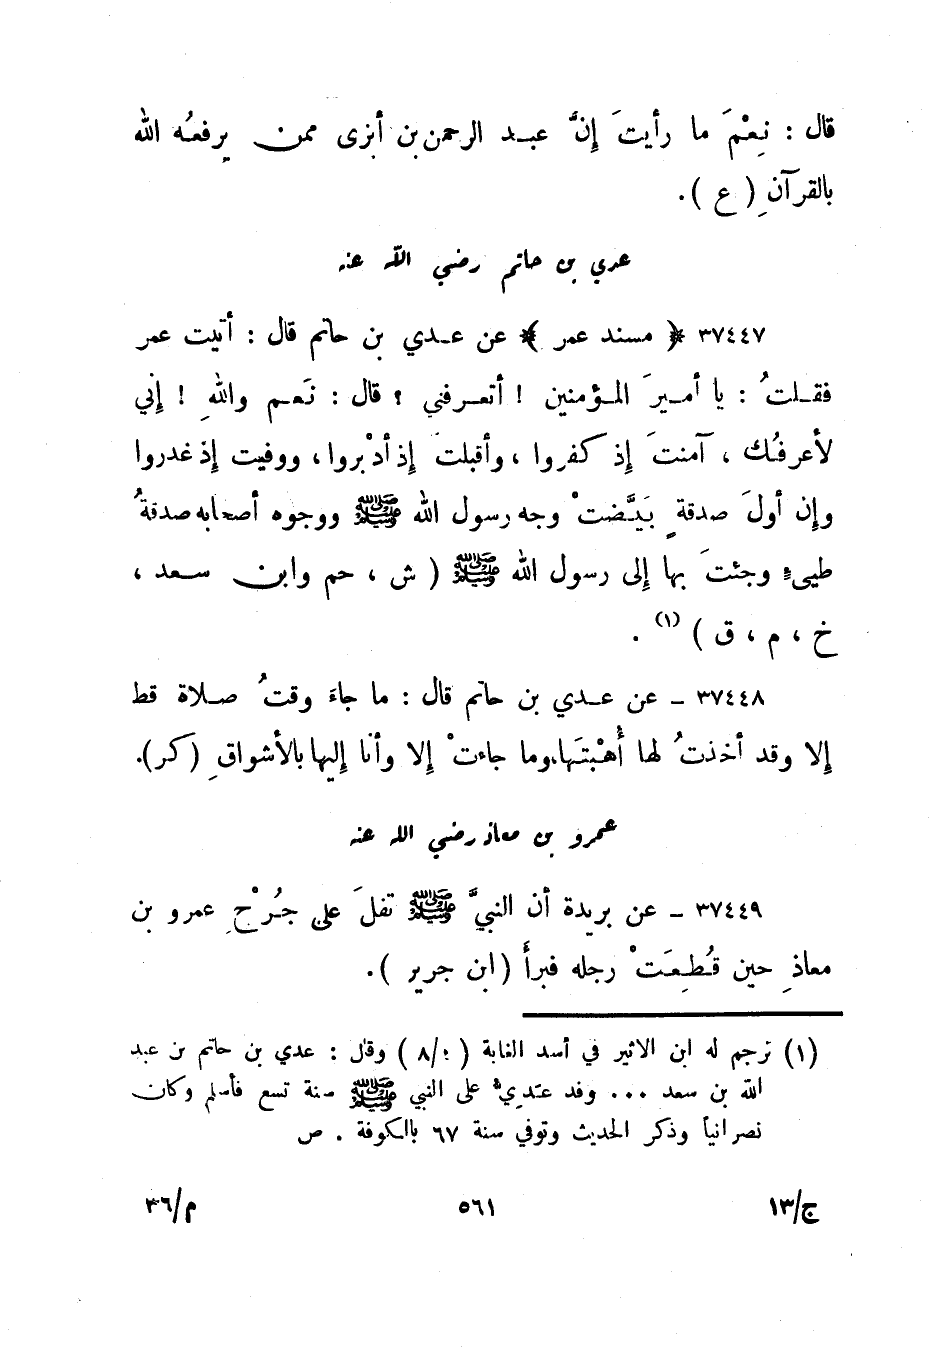 قال : نِعْمَ ما رأيتَ إنَّ عبد الرحمن بن أبزى ممن يرفعُه الله
بالقرآنِ ( ع ) .
عدي بن حاتم رضي الله عنه
٣٧٤٤٧ ﴿ مسند عمر ﴾ عن عدي بن حاتم قال : أتيت عمر
فقلتُ : يا أميرَ المؤمنين ! أتعرفني ؟ قال : نَعم واللهِ ! إني
لأعرفُك ، آمنتَ إذ كفروا ، وأقبلتَ إذ أدْبروا ، ووفيت إذ غدروا
وإن أولَ صدقةٍ بَيَّضتْ وجه رسول الله ﷺ ووجوه أصحابه صدقةُ
طيىءٍ وجئتَ بها إلى رسول الله ﷺ ( ش ، حم وابن سعد ،
خ ، م ، ق ) (١) .
٣٧٤٤٨ ـ عن عدي بن حاتم قال : ما جاءَ وقتُ صلاة قط
إلا وقد أخذتُ لها أُهْبتَها،وما جاءتْ إلا وأنا إليها بالأشواقِ (كر).
عمرو بن معاذ رضي الله عنه
٣٧٤٤٩ ـ عن بريدة أن النبيَّ ﷺ تفلَ على جُرْحِ عمرو بن
معاذِ حين قُطِعَتْ رجله فبرأَ (ابن جرير ) .
(١) ترجم له ابن الاثير في أسد الغابة ( ٤/٨ ) وقال : عدي بن حاتم بن عبد
الله بن سعد ... وفد عَدِيٌّ على النبي ﷺ سنة تسع فأسلم وكان
نصرانياً وذكر الحديث وتوفي سنة ٦٧ بالكوفة . ص
ج/١٣ ٥٦١ م/٣٦